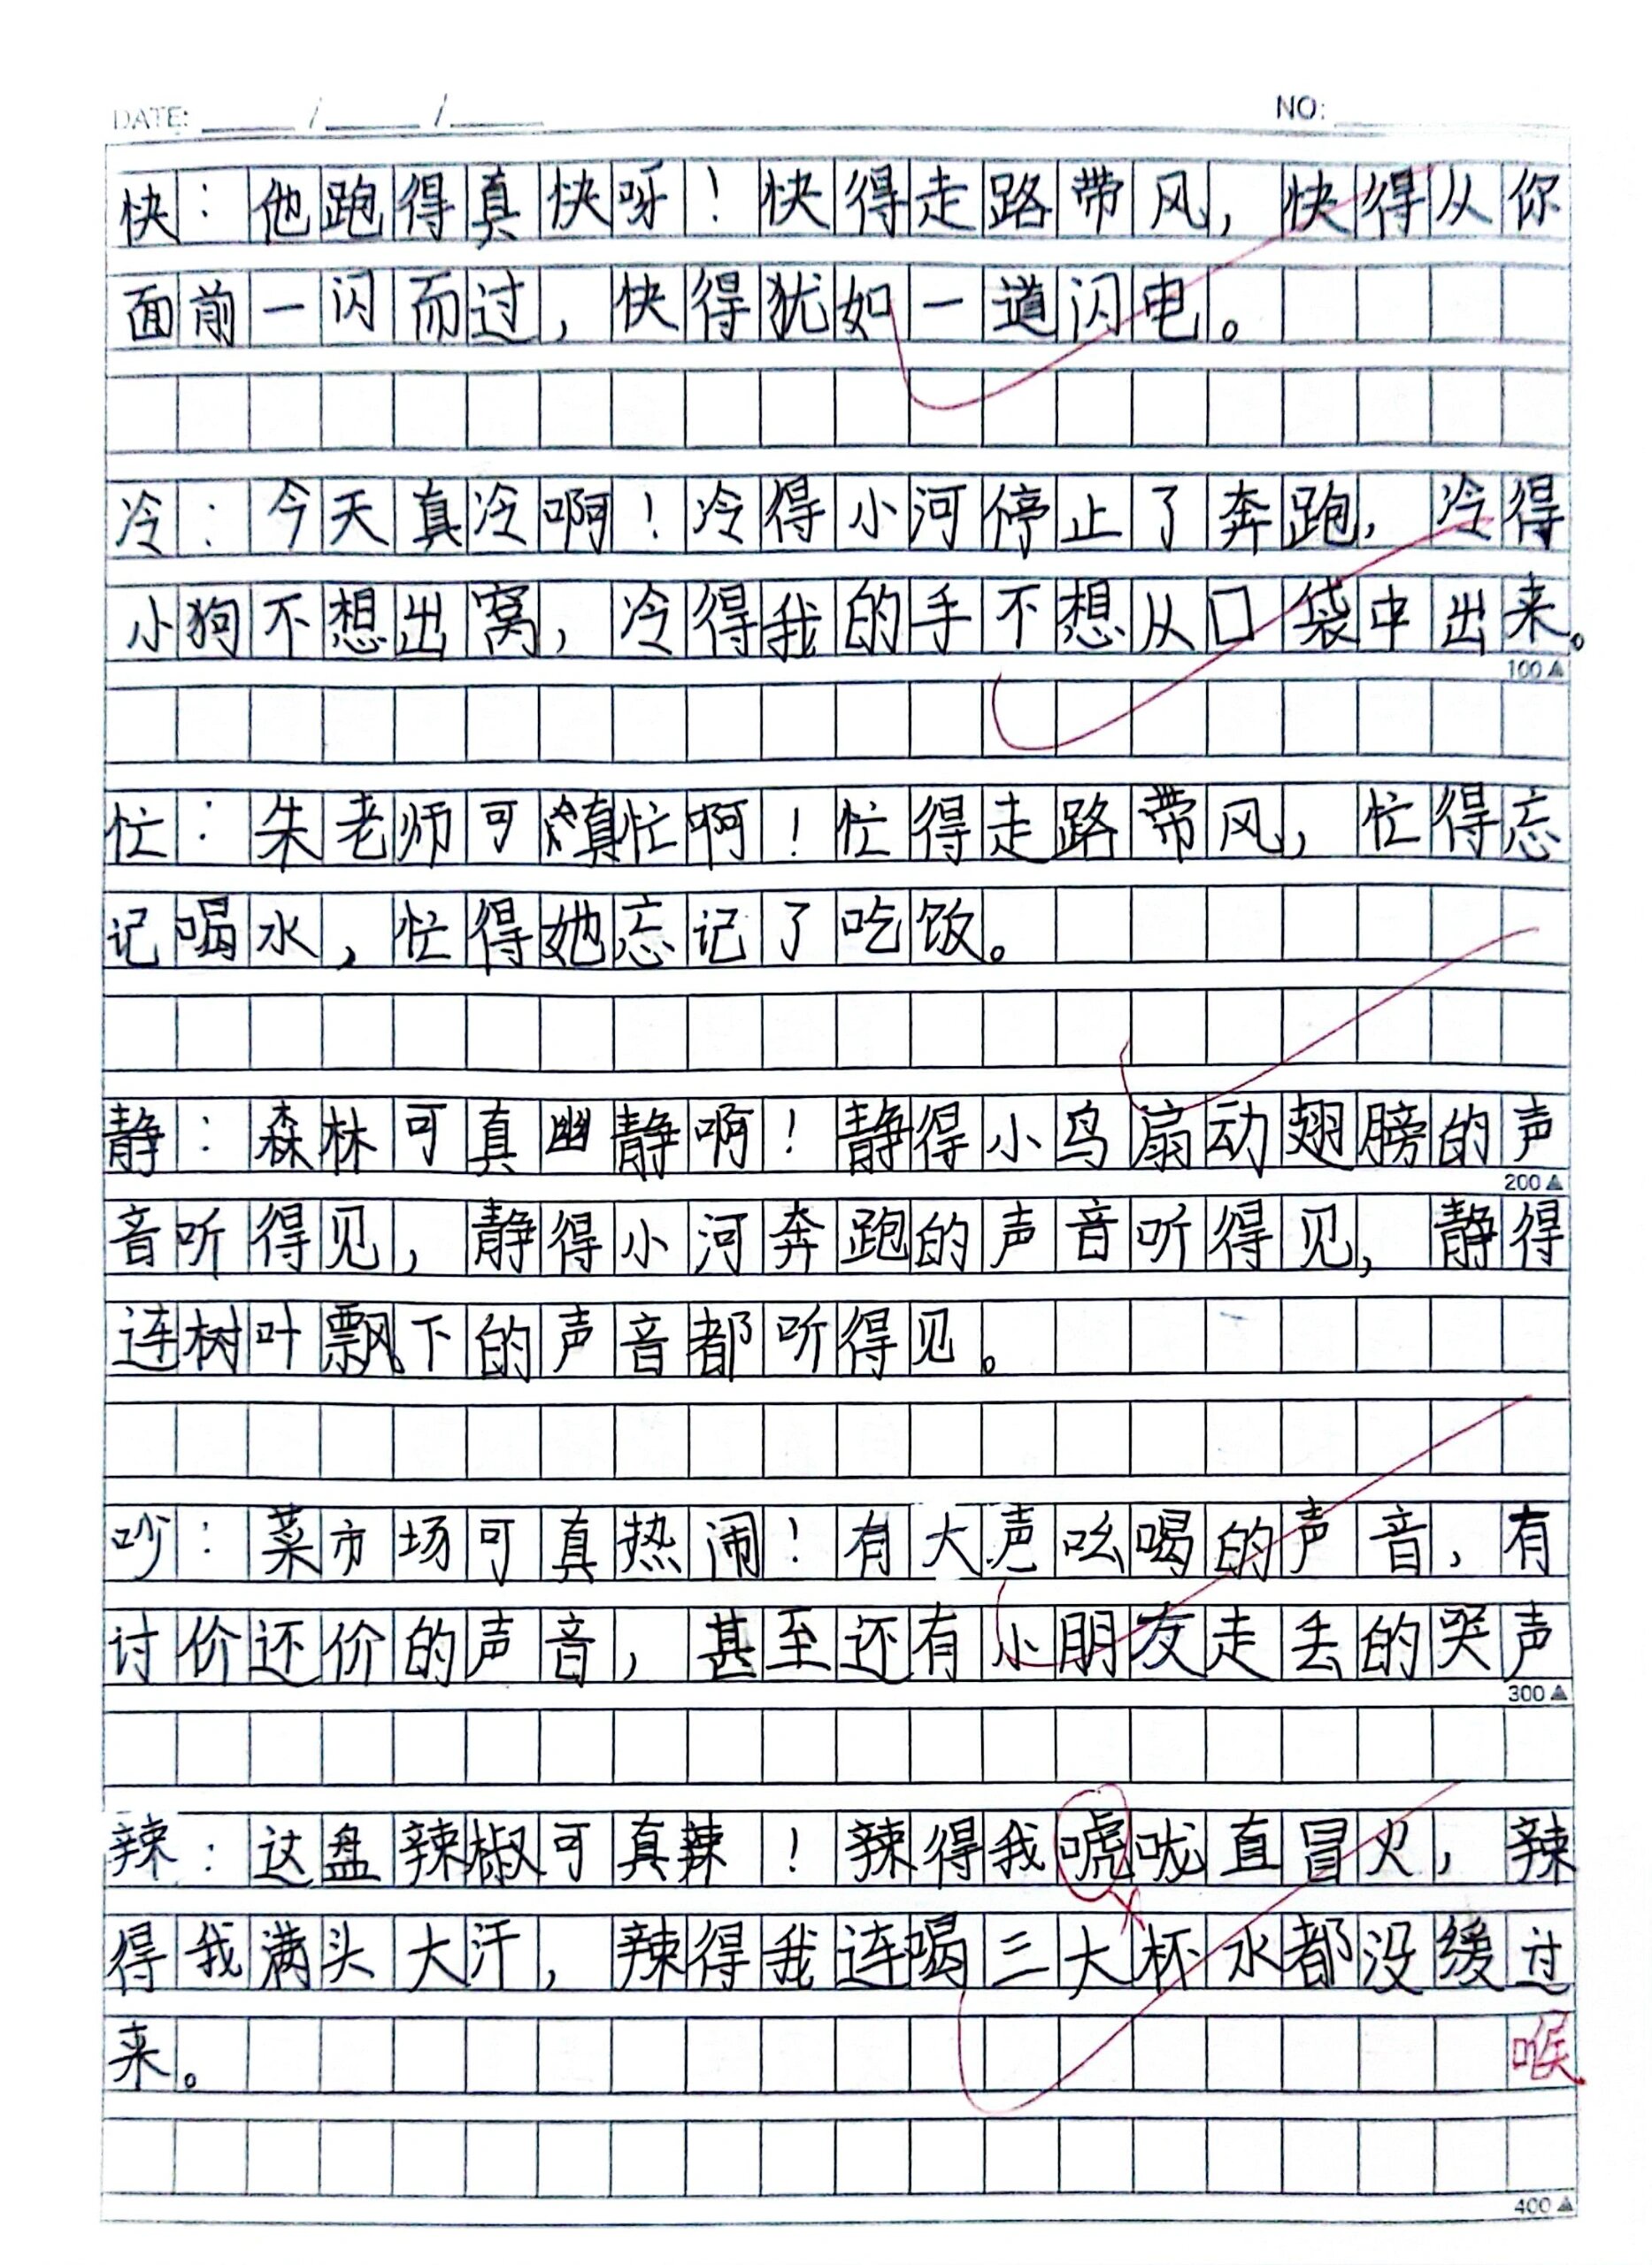 DATE: / / NO:
快：他跑得真快呀！快得走路带风，快得从你
面前一闪而过，快得犹如一道闪电。
冷：今天真冷啊！冷得小河停止了奔跑，冷得
小狗不想出窝，冷得我的手不想从口袋中出来。
100▲
忙：朱老师可真忙啊！忙得走路带风，忙得忘
记喝水，忙得她忘记了吃饭。
静：森林可真幽静啊！静得小鸟扇动翅膀的声
200▲
音听得见，静得小河奔跑的声音听得见，静得
连树叶飘下的声音都听得见。
吵：菜市场可真热闹！有大声吆喝的声音，有
讨价还价的声音，甚至还有小朋友走丢的哭声
300▲
辣：这盘辣椒可真辣！辣得我唬咙直冒火，辣
得我满头大汗，辣得我连喝三大杯水都没缓过
来。 喉
400▲